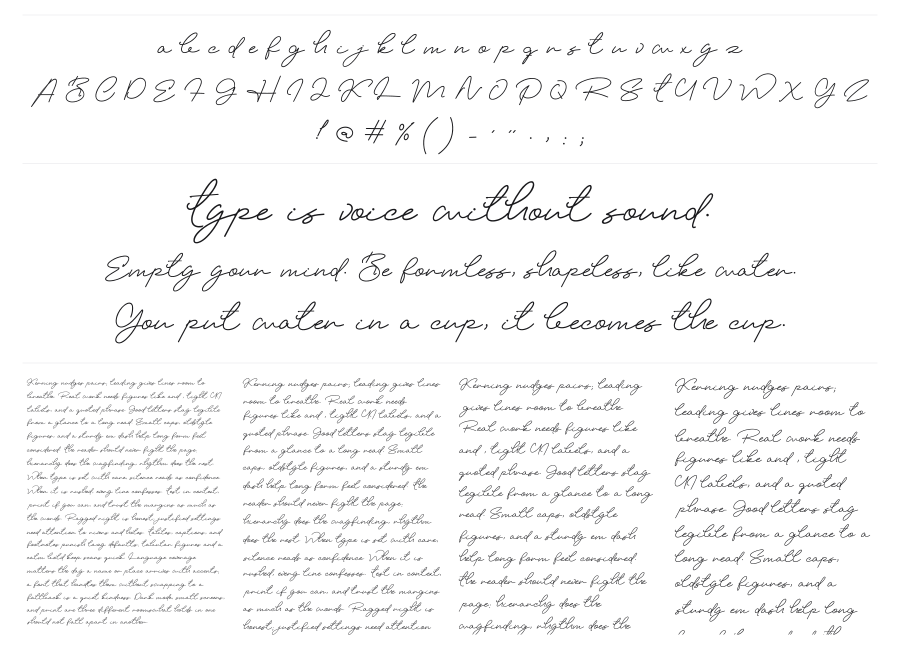 a b c d e f g h i j k l m n o p q r s t u v w x y z
A B C D E F G H I J K L M N O P Q R S T U V W X Y Z
! @ # % ( ) - ' " . , : ;
Type is voice without sound.
Empty your mind. Be formless, shapeless, like water.
You put water in a cup, it becomes the cup.
Kerning nudges pairs, leading gives lines room to
breathe. Real work needs figures like and , tight UI
labels, and a quoted phrase. Good letters stay legible
from a glance to a long read. Small caps, oldstyle
figures, and a sturdy em dash help long form feel
considered. The reader should never fight the page,
hierarchy does the wayfinding, rhythm does the rest.
When type is set with care, silence reads as confidence.
When it is rushed, every line confesses. Test in context,
print if you can, and trust the margins as much as
the words. Ragged right is honest, justified settings
need attention to rivers and holes. Tables, captions, and
footnotes punish lazy defaults, tabular figures and a
calm bold keep scans quick. Language coverage
matters the day a name or place arrives with accents,
a font that handles them without swapping to a
fallback is a quiet kindness. Dark mode, small screens,
and print are three different rooms, what holds in one
should not fall apart in another.
Kerning nudges pairs, leading gives lines
room to breathe. Real work needs
figures like and , tight UI labels, and a
quoted phrase. Good letters stay legible
from a glance to a long read. Small
caps, oldstyle figures, and a sturdy em
dash help long form feel considered. The
reader should never fight the page,
hierarchy does the wayfinding, rhythm
does the rest. When type is set with care,
silence reads as confidence. When it is
rushed, every line confesses. Test in context,
print if you can, and trust the margins
as much as the words. Ragged right is
honest, justified settings need attention
Kerning nudges pairs, leading
gives lines room to breathe.
Real work needs figures like
and , tight UI labels, and a
quoted phrase. Good letters stay
legible from a glance to a long
read. Small caps, oldstyle
figures, and a sturdy em dash
help long form feel considered.
The reader should never fight the
page, hierarchy does the
wayfinding, rhythm does the
Kerning nudges pairs,
leading gives lines room to
breathe. Real work needs
figures like and , tight
UI labels, and a quoted
phrase. Good letters stay
legible from a glance to a
long read. Small caps,
oldstyle figures, and a
sturdy em dash help long